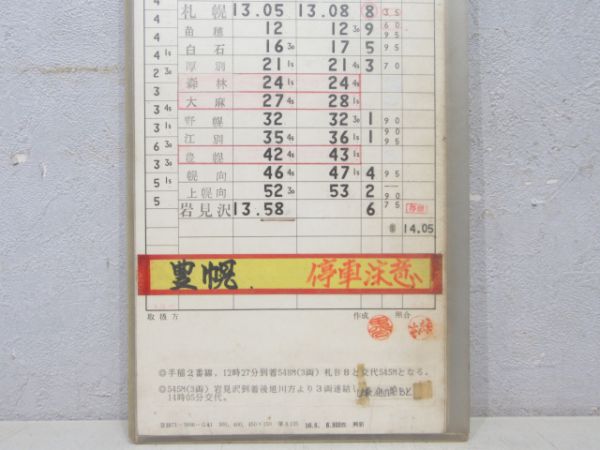 4 札幌 13.05 13.08 8 35
4 苗穂 12 12 3s 9 60 95
3 白石 16 3s 17 5 95
4 1s 厚別 21 1s 21 4s 3 70
2 3s 森林 24 1s 24 4s
3 大麻 27 4s 28 1s
3 4s 野幌 32 32 3s 1 90
3 1s 江別 35 4s 36 1s 1 90 95
6 3s 豊幌 42 4s 43 1s
3 3s 幌向 46 4s 47 1s 4 95
5 1s 上幌向 52 3s 53 2 90
5 岩見沢 13.58 6 75
14.05
豊幌 停車注意
取扱方 作成 照合
◎手稲2番線、12時27分到着548M(3両)札Bȣと交代545Mとなる。
◎545M(3両)岩見沢到着後旭川方より3両連結し
14時05分交代。